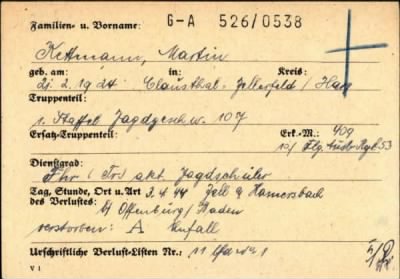 G-A 526/0538
Familien- u. Vorname:
Kettmann, Martin
geb. am: in: Kreis:
2. 1924 Clausthal-Zellerfeld / Harz
Truppenteil:
1. Staffel Jagdgeschw. 107
Ersatz-Truppenteil: Erk.-M.: 409
10/ Flg. Ausb. Rgt. 53
Dienstgrad:
Fhr. akt. Jagdschüler
Tag, Stunde, Ort u. Art 3. 4. 44 Zell a Hamersbach
des Verlustes: Offenburg/Baden
verstorben: A Unfall
Urschriftliche Verlust-Listen Nr.: 11 lfd Nr. 1
V 1